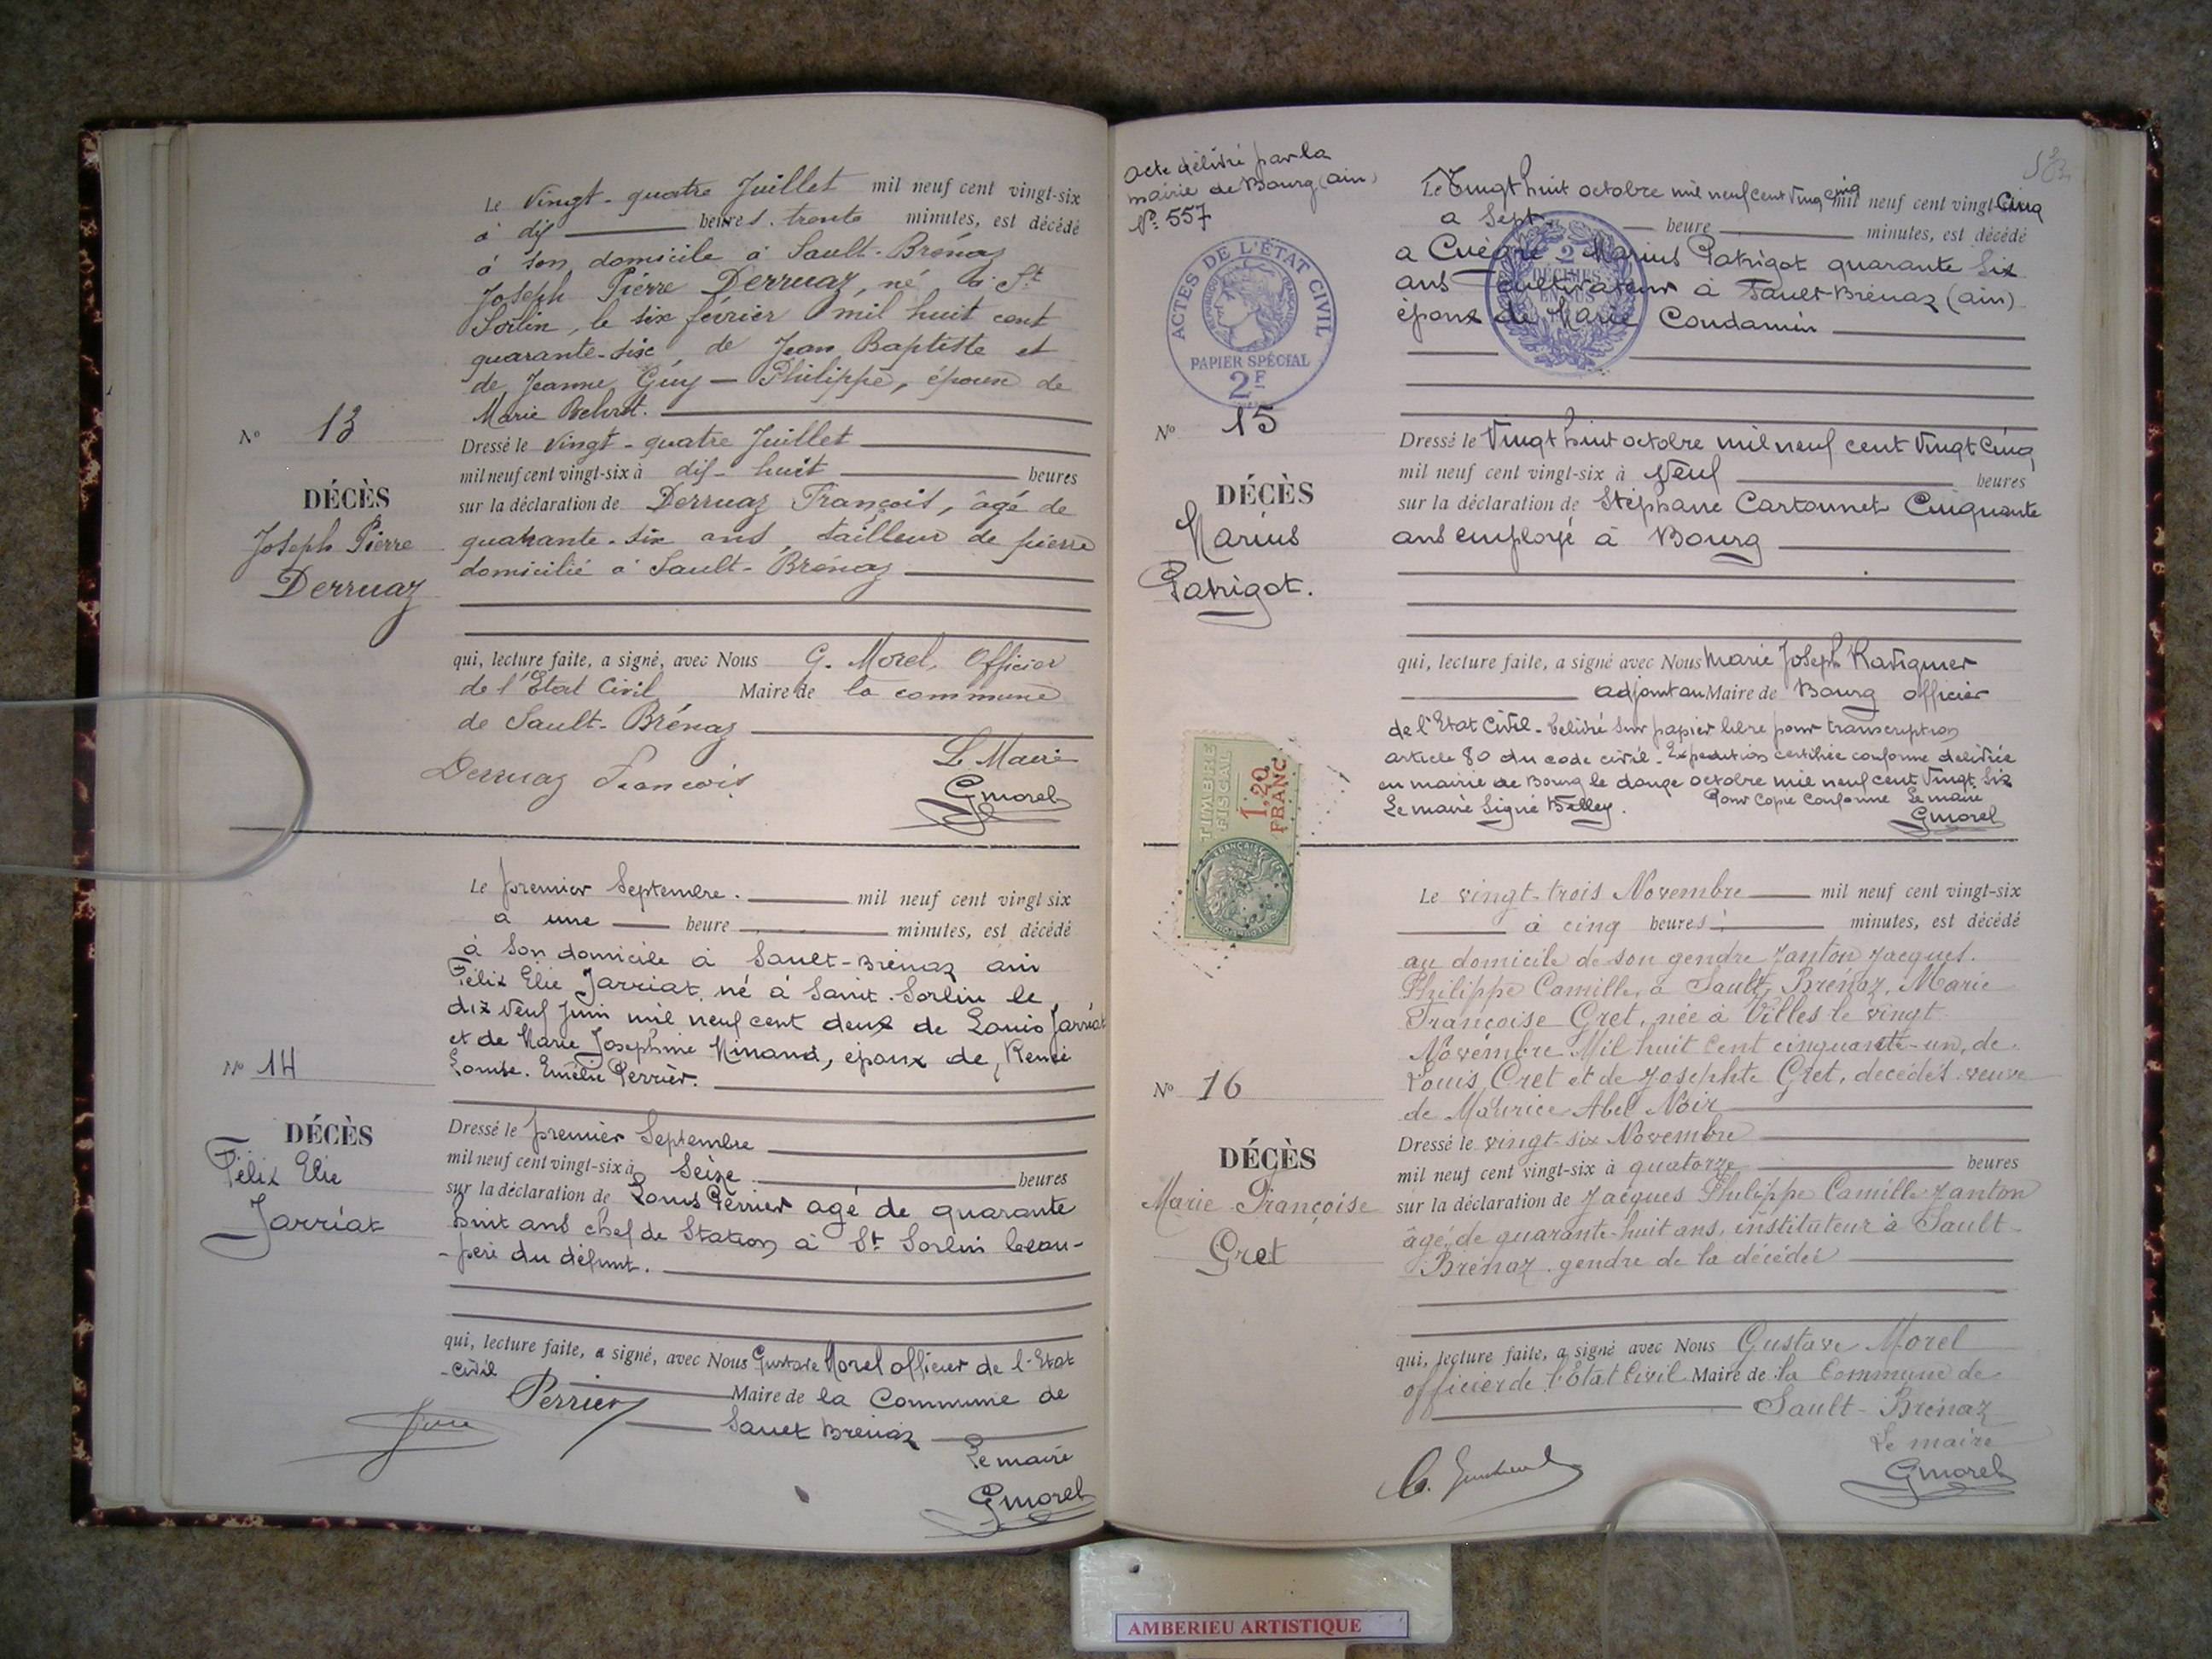 Le Vingt-quatre Juillet mil neuf cent vingt-six
à dix heures trente minutes, est décédé
à son domicile à Sault-Brénaz
Joseph Pierre Derruaz, né à St
Sorlin, le six février mil huit cent
quarante-six, de Jean Baptiste et
de Jeanne Guy-Philippe, époux de
Marie
No 13
DÉCÈS
Joseph Pierre
Derruaz
Dressé le vingt-quatre Juillet
mil neuf cent vingt-six à dix-huit heures
sur la déclaration de Derruaz François, âgé de
quarante-six ans, tailleur de pierre
domicilié à Sault-Brénaz
qui, lecture faite, a signé, avec Nous G. Morel, Officier
de l'Etat Civil Maire de la commune
de Sault-Brénaz
Derruaz François
Le Maire
GMorel
Le premier Septembre. mil neuf cent vingt six
à une heure minutes, est décédé
à son domicile à Sault-Brénaz ain
Félix Elie Jarriat, né à Saint-Sorlin le
dix neuf Juin mil neuf cent deux de Louis Jarriat
et de Marie Josephine Minand, époux de, Renée
Louise. Emélie Perrier.
No 14
DÉCÈS
Félix Elie
Jarriat
Dressé le premier Septembre
mil neuf cent vingt-six à Seize heures
sur la déclaration de Louis Perrier agé de quarante
huit ans chef de Station à St Sorlin beau-
-père du défunt.
qui, lecture faite, a signé, avec Nous Gustave Morel officier de l'Etat
-civil Maire de la Commune de
Sault Brénaz
Perrier
Le maire
GMorel
acte délivré par la
mairie de Bourg (ain)
No 557
ACTES DE L'ÉTAT CIVIL
RÉPUBLIQUE FRANÇAISE
PAPIER SPÉCIAL
2F
No 15
DÉCÈS
Marius
Patrigot.
Le Vingt huit octobre mil neuf cent Vingt cinq mil neuf cent vingt-Cinq
a Sept heure minutes, est décédé
2
DÉCIMES
EN SUS
a Cuègre Marius Patrigot quarante Six
ans cultivateur à Sault-Brénaz (ain)
époux de Marie Condamin
Dressé le Vingt huit octobre mil neuf cent Vingt Cinq
mil neuf cent vingt-six à Neuf heures
sur la déclaration de Stéphane Cartonnet Cinquante
ans employé à Bourg
qui, lecture faite, a signé avec Nous Marie Joseph Ravignier
adjoint au Maire de Bourg officier
de l'Etat Civil. Délivré sur papier libre pour transcription
article 80 du code civil. Expédition certifiée conforme délivrée
en mairie de Bourg le douze octobre mil neuf cent Vingt Six
Le maire Signé Belley. Pour Copie Conforme Le maire
GMorel
TIMBRE
FISCAL
1,20
FRANC
Le vingt-trois Novembre mil neuf cent vingt-six
à cinq heures minutes, est décédé
au domicile de son gendre Janton Jacques.
Philippe Camille, à Sault-Brénaz, Marie
Françoise Cret, née à Villes le vingt
Novembre Mil huit cent cinquante-un, de
Louis Cret et de Josephte Gret, décédés. veuve
de Maurice Abel Noir
No 16
DÉCÈS
Marie Françoise
Cret
Dressé le vingt-six Novembre
mil neuf cent vingt-six à quatorze heures
sur la déclaration de Jacques Philippe Camille Janton
âgé de quarante-huit ans, instituteur à Sault-
Brénaz. gendre de la décédée
qui, lecture faite, a signé avec Nous Gustave Morel
officier de l'Etat Civil Maire de la Commune de
Sault-Brénaz
Le maire
GMorel
AMBERIEU ARTISTIQUE